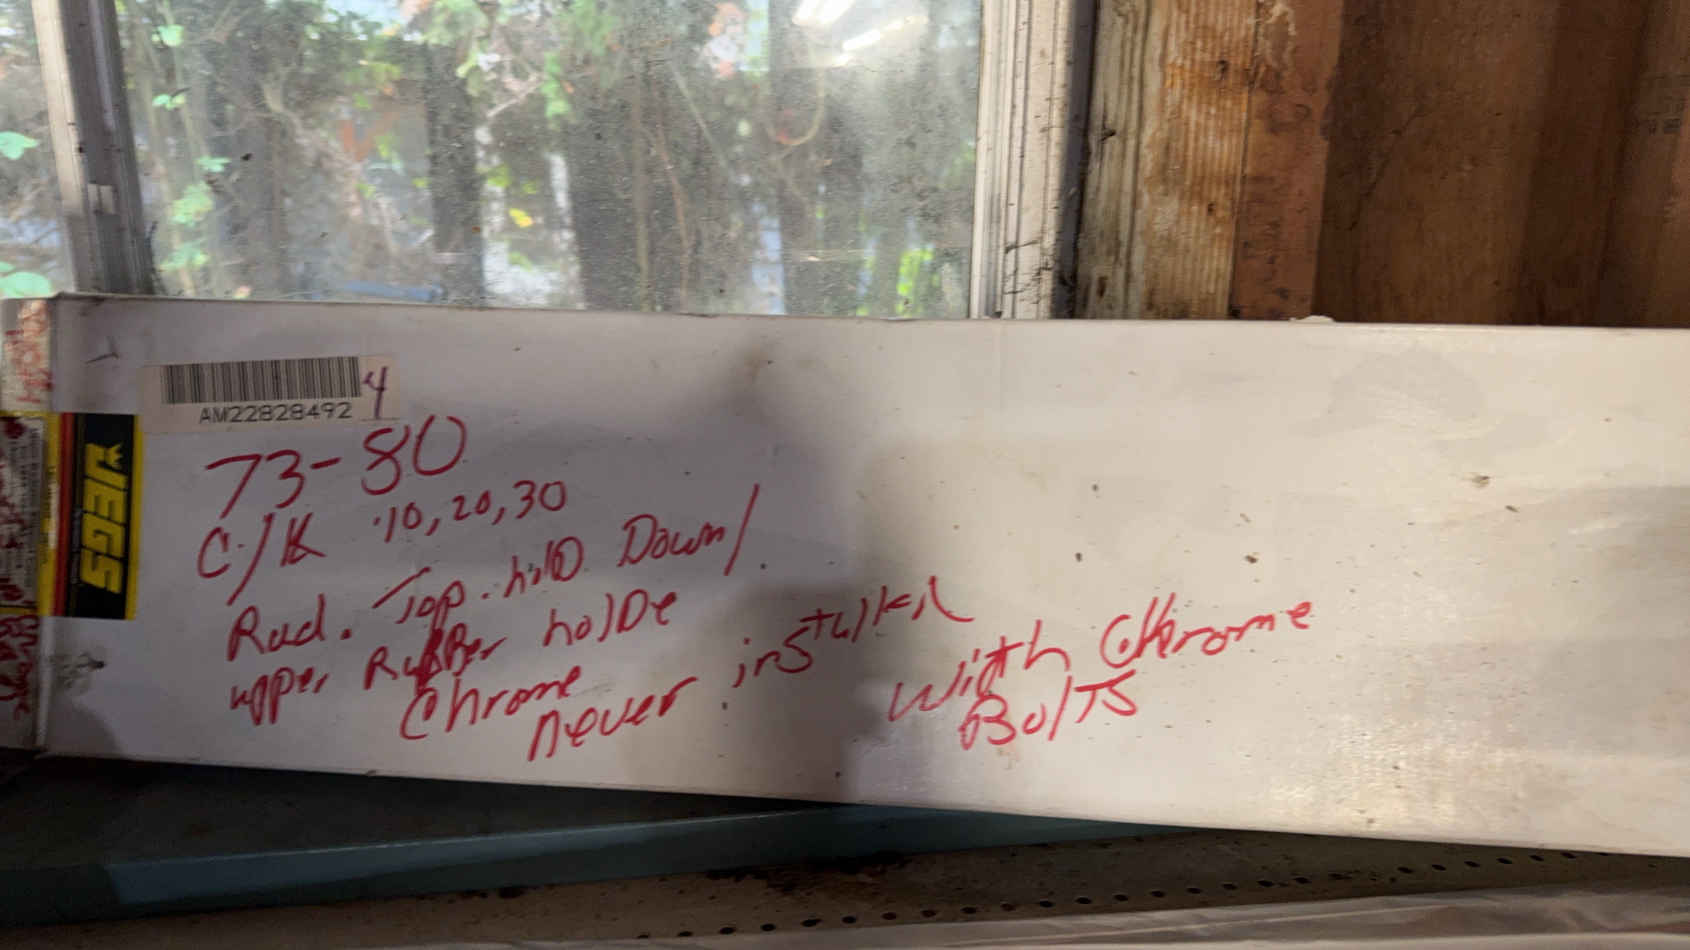 AM22828492
4
JEGS
73-80
C/K 10, 20, 30
Rad. Top. hold Down/
upper RuBBer holDe
Chrome
never installed
with Chrome
BolTS